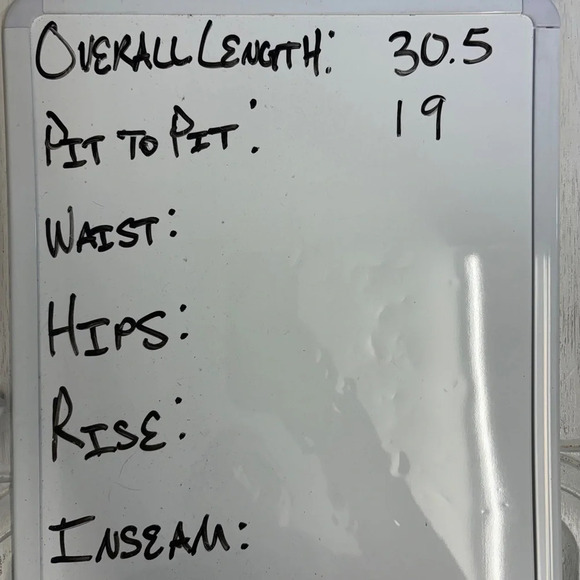 OVERALL LENGTH: 30.5
PIT TO PIT: 19
WAIST:
HIPS:
RISE:
INSEAM: